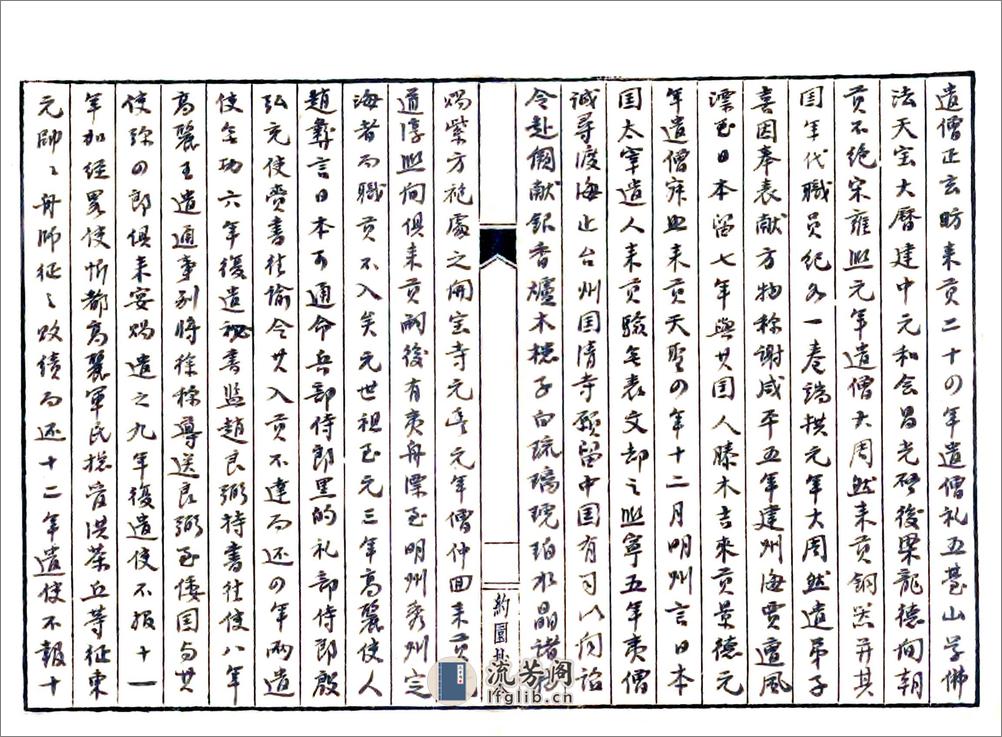 遣僧正玄昉来貢二十四年遣僧礼五臺山学佛
法天宝大曆建中元和会昌光啓後梁龍德间朝
貢不绝宋雍熙元年遣僧大周然来貢銅器并其
国年代職员纪各一卷端拱元年大周然遣弟子
喜因奉表献方物称谢咸平五年建州海賈遭風
漂至日本留七年與其国人滕木吉來貢景德元
年遣僧寂照来貢天聖四年十二月明州言日本
国太宰遣人来貢驗无表文却之熙寧五年夷僧
诚尋渡海止台州国清寺願留中国有司以闻诏
令赴闕献銀香爐木槵子白琉璃琥珀水晶諸
約園抄
赐紫方袍處之開宝寺元豊元年僧仲回来貢
道淳熙间俱来貢嗣後有夷舟漂至明州秀州定
海者而職貢不入矣元世祖至元三年高麗使人
趙彝言日本可通命兵部侍郎黑的礼部侍郎殷
弘充使賫書往諭令其入貢不達而还四年两遣
使无功六年復遣秘書监趙良弼持書往使八年
高麗王遣通事别将徐稱導送良弼至倭国与其
使弥四郎俱来宴赐遣之九年復遣使不报十一
年加經畧使忻都高麗軍民捴管洪茶丘等征東
元帥〻舟師征之敗绩而还十二年遣使不報十
流芳阁
lfglib.cn